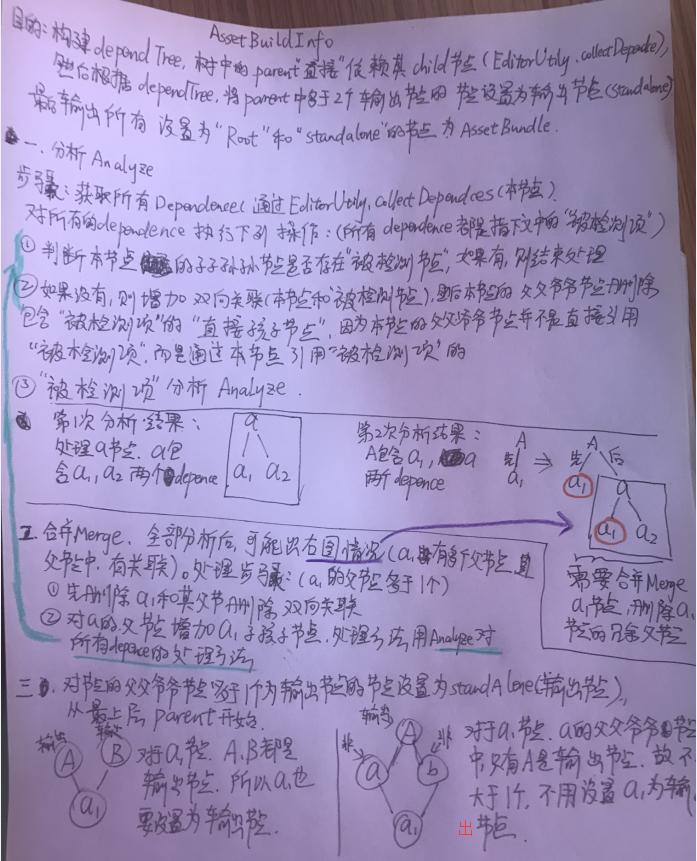 AssetBuildInfo
目的: 构建dependTree, 树中的parent"直接"依赖其child节点(EditorUtily.collectDepende),
然后根据dependTree, 将parent中多于2个输出节点的 节点设置为输出节点(standalone)
最后输出所有 设置为"Root"和"standalone"的节点为AssetBundle.
一. 分析Analyze
步骤: 获取所有Dependence(通过EditorUtily.collectDependces(本节点).
对所有的dependence 执行下列 操作: (所有dependence都是指下文中的"被检测项")
① 判断本节点的子子孙孙节点是否存在"被检测节点", 如果有, 则结束处理
② 如果没有, 则增加 双向关联(本节点和"被检测节点), 最后本节点的父父爷爷节点删除
包含"被检测项"的"直接孩子节点", 因为本节点的父父爷爷节点并不是直接引用
"被检测项", 而是通过本节点引用"被检测项"的
③ "被检测项"分析Analyze.
第1次分析结果:
处理a节点. a包
含a1, a2 两个depence
a
a1 a2
第2次分析结果:
A包含a1, a
两个depence
A
先
a1
⇒
A
先 后
a1 a
a1 a2
二. 合并Merge. 全部分析后, 可能出右图情况(a1有多个父节点, 且
父节点中, 有关联)。处理步骤: (a1的父节点多于1个)
① 先删除a1和其父节点删除 双向关联
② 对a的父节点增加a1子孩子节点. 处理方法用Analyze对
所有depence的处理方法
需要合并Merge
a1节点, 删除a1
节点的冗余父节点
三. 对节点的父父爷爷节点多于1个为输出节点的节点设置为standAlone(输出节点),
从最上层parent开始.
输出 输出
A B
a1
对于a1节点. A.B都是
输出节点. 所以a1也
要设置为输出节点.
输出
A
非 非
a b
a1
对于a1节点. a的父父爷爷节点
中, 只有A是输出节点. 故不
大于1个, 不用设置a1为输
出节点.